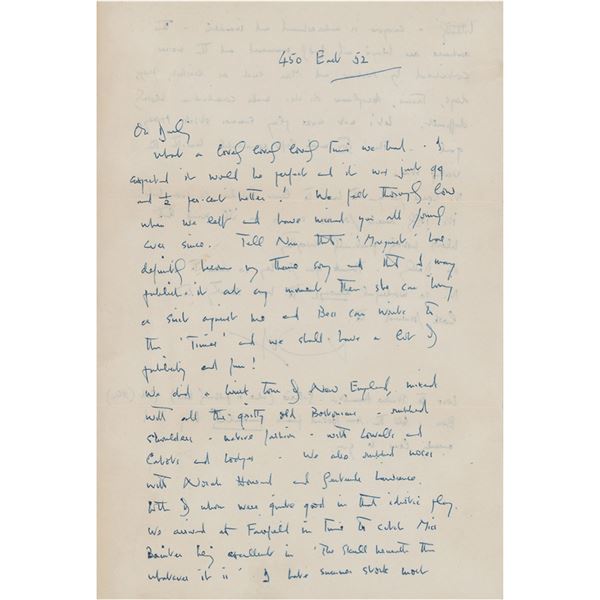 450 East 52
Oh Darling
What a lovely lovely lovely time we had. I
expected it would be perfect and it was just 99
and ½ per cent better! We felt thoroughly low
when we left and have missed you all
ever since. Tell that 'Marguerite' has
definitely become my theme song and that I may
publish it at any moment then she can bring
a suit against me and can write to
the 'Times' and we shall have a lot of
publicity and fun!
We did a tour of New England, mixed
with all the old Bostonians - rubbed
shoulders - native fashion - with Lowells and
Cabots and Lodges - We also rubbed noses
with Norah Howard and Gertrude Lawrence
both of whom were quite good in that idiotic play.
We arrived at Fairfield in time to catch Miss
Bainter being excellent in 'The Skull beneath the
whatever it is' I hate summer stock most